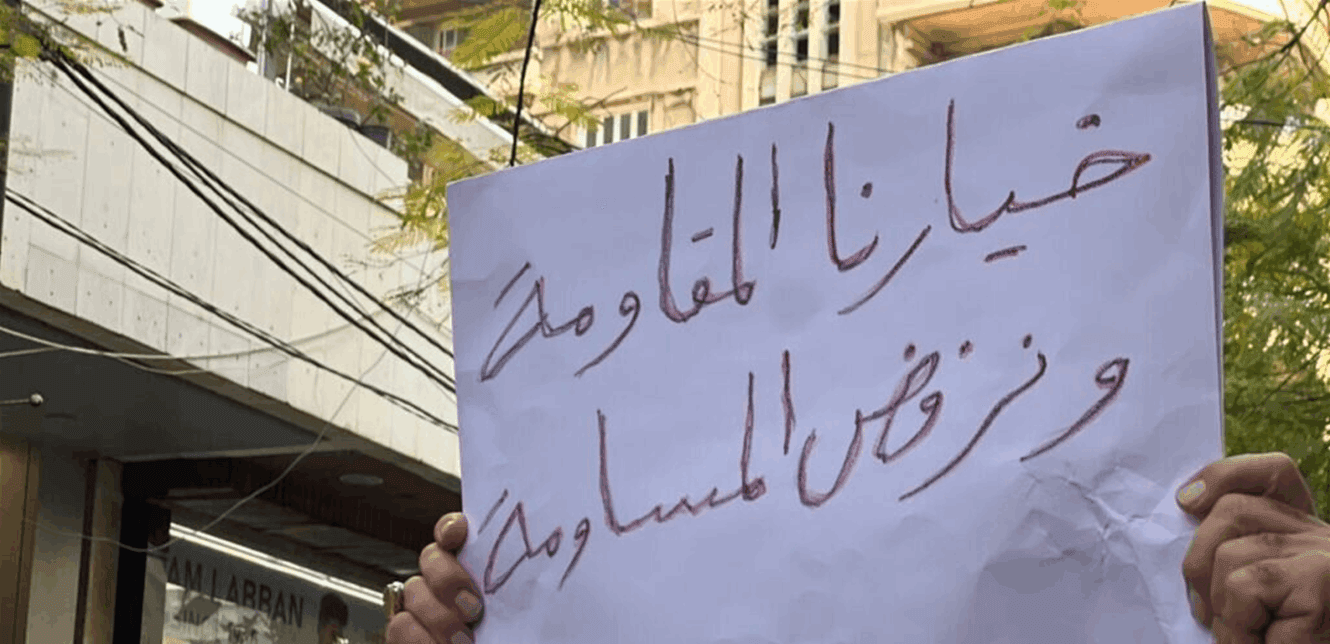 خيارنا المقاومة
ونرفض المساومة
AM LABBAN